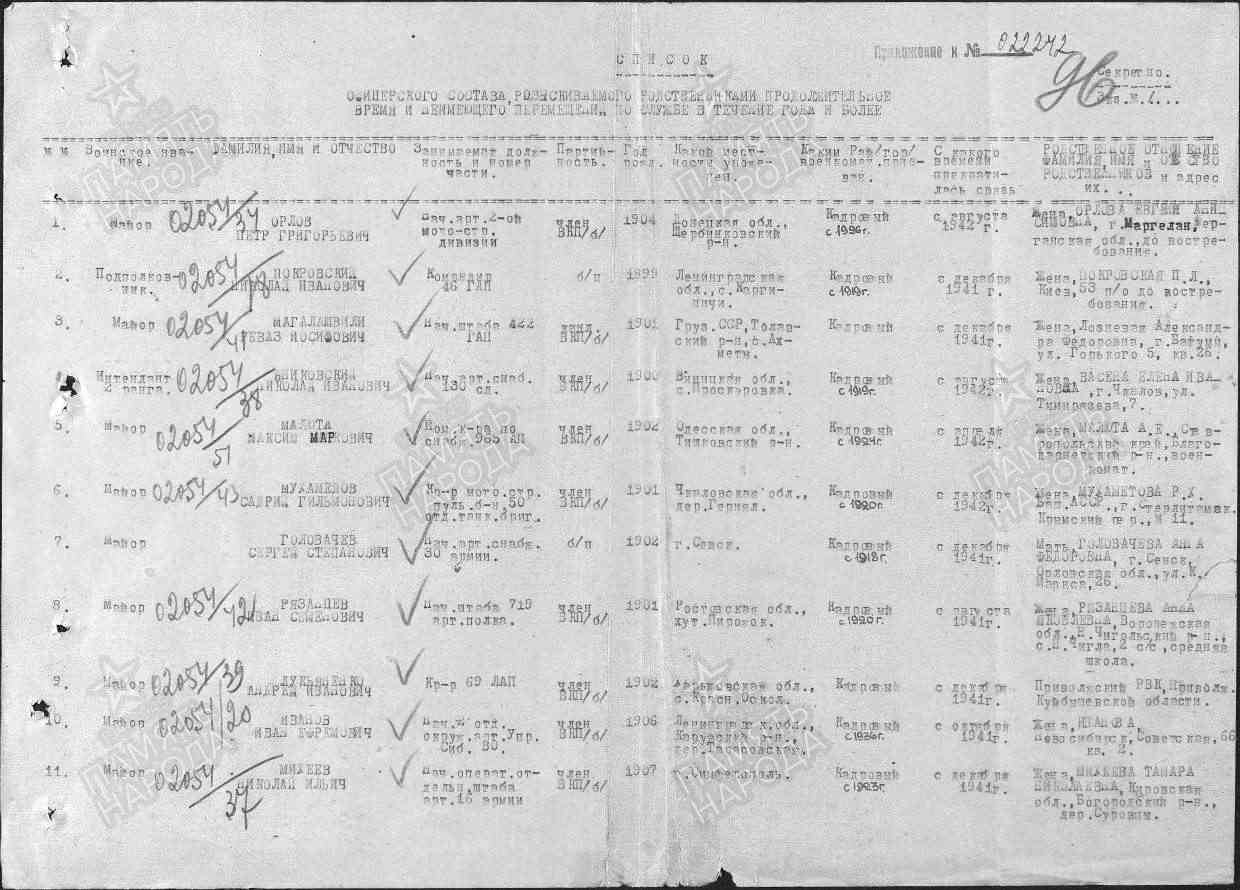 СПИСОК
Приложение к № 022242
96
Секретно.
Экз.№ 1...
ОФИЦЕРСКОГО СОСТАВА, РОЗЫСКИВАЕМОГО РОДСТВЕННИКАМИ ПРОДОЛЖИТЕЛЬНОЕ
ВРЕМЯ И НЕИМЕЮЩЕГО ПЕРЕМЕЩЕНИ., ПО СЛУЖБЕ В ТЕЧЕНИЕ ГОДА И БОЛЕЕ
№ № Воинское зва- ФАМИЛИЯ, ИМЯ И ОТЧЕСТВО Занимаемая долж- Партий- Год Какой мест- Каким Рай/гор/ С какого РОДСТВЕННОЕ ОТНОШЕНИЕ
ние. ность и номер ность. рожд. ности уроже- времени ФАМИЛИЯ, ИМЯ и ОТЧЕСТВО
части. нец. прекрати- РОДСТВЕННИКОВ и адрес
лась связь их...
1. Майор 02054/34 ОРЛОВ Нач.арт.2-ой член 1904 Донецкая обл., Кадровый с августа Жена, ОРЛОВА
ПЕТР ГРИГОРЬЕВИЧ мото-стр. ВКП/б/ Щербинковский с 1926г. 1942 г. г. Маргелан, Фер-
дивизии р-н. ганская обл., до востре-
бования.
2. Подполков- 02054/18 ПОКРОВСКИЙ Командир б/п 1899 Ленинградская Кадровый с декабря Жена, ПОКРОВСКАЯ П.Л.,
ник. НИКОЛАЙ ИВАНОВИЧ 46 ГАП обл., с. с 1919г. 1941 г. Киев, 53 п/о до востре-
бования.
3. Майор 02054/41 МАГАЛАШВИЛИ Нач.штаба 422 канд. 1901 Груз.ССР, Кадровый с декабря Жена, Лозневая Александ-
РЕВАЗ ИОСИФОВИЧ ГАП ВКП/б/ ский р-н, с. Ах- 1941г. ра Федоровна, г. Батуми,
меты. ул. Горького 5, кв.26.
4. Интендант 02054/38 Нач.арт.снаб. член 1900 Виницкая обл., Кадровый с августа Жена, ВАСЕВА ЕЛЕНА ИВА-
2 ранга. НИКОЛАЙ ИВАНОВИЧ ВКП/б/ с.Проскуровка. с 1919г. 1942г. НОВНА, г.Чкалов, ул.
Тимирязева, 7.
5. Майор 02054/51 МАЛЮТА Пом.к-ра по член 1902 Одесская обл., Кадровый с апреля Жена, МАЛЮТА А.Е., Став-
МАКСИМ МАРКОВИЧ снабж. 965 АП ВКП/б/ Тишковский р-н. с 1924г. 1942г. ропольский край, Благо-
дарненский р-н., воен-
комат.
6. Майор 02054/43 МУХАМЕДОВ Ка-р мото.стр. член 1901 Чкаловская обл., Кадровый с декабря Жена, МУХАМЕТОВА Р.Х.
ГИЛЬМОНОВИЧ пуль.б-н, 50 ВКП/б/ дер. с 1920г. 1942г. Баш.АССР., г.Стерлитамак.
отд.танк.бриг. Крымский пер., № 11.
7. Майор ГОЛОВАЧЕВ Нач.арт.снабж. б/п 1902 г.Севск. Кадровый с декабря Мать, ГОЛОВАЧЕВА АННА
СЕРГЕЙ СТЕПАНОВИЧ 30 армии. с 1918г. 1941г. ФЕДОРОВНА, г.Севск,
Орловская обл., ул.К.
Маркса, 26.
8. Майор 02054/42 РЯЗАНЦЕВ Нач.штаба 719 член 1901 Ростовская обл., Кадровый с августа Жена, РЯЗАНЦЕВА АННА
ИВАН СЕМЕНОВИЧ арт.полка. ВКП/б/ хут.Пирожок. с 1920г. 1941г. ЯКОВЛЕВНА, Воронежская
обл., Н.Чигольский р-н.,
с.Н.Чигла, 2 с/с, средняя
школа.
9. Майор 02054/39 ЛУКЬЯНЕНКО Кр-р 69 ЛАП член 1902 Харьковская обл., Кадровый с декабря Приволжский РВК, Приволж.
АНДРЕЙ ИВАНОВИЧ ВКП/б/ с.Красн.Окол. 1941г. Куйбышевской области.
10. Майор 02054/20 ИВАНОВ Нач. отд. член 1906 Ленинградск.обл., Кадровый с октября Жена, ИВАНОВА,
ИВАН ЕФРЕМОВИЧ окруж.арт.Упр. ВКП/б/ р-н., с 1936г. 1941г. Новосибирск, Советская, 66
Сиб. ВО. дер.Тарасовская. кв. 2.
11. Майор 02054/37 МИХЕЕВ Нач.операт.от- член 1907 г.Симферополь. Кадровый с декабря Жена, МИХЕЕВА ТАМАРА
НИКОЛАЙ ИЛЬИЧ дельн.штаба ВКП/б/ с 1923г. 1941г. НИКОЛАЕВНА, Кировская
арт.16 армии обл., Богородский р-н.,
дер.Суровцы.
ПАМЯТЬ НАРОДА